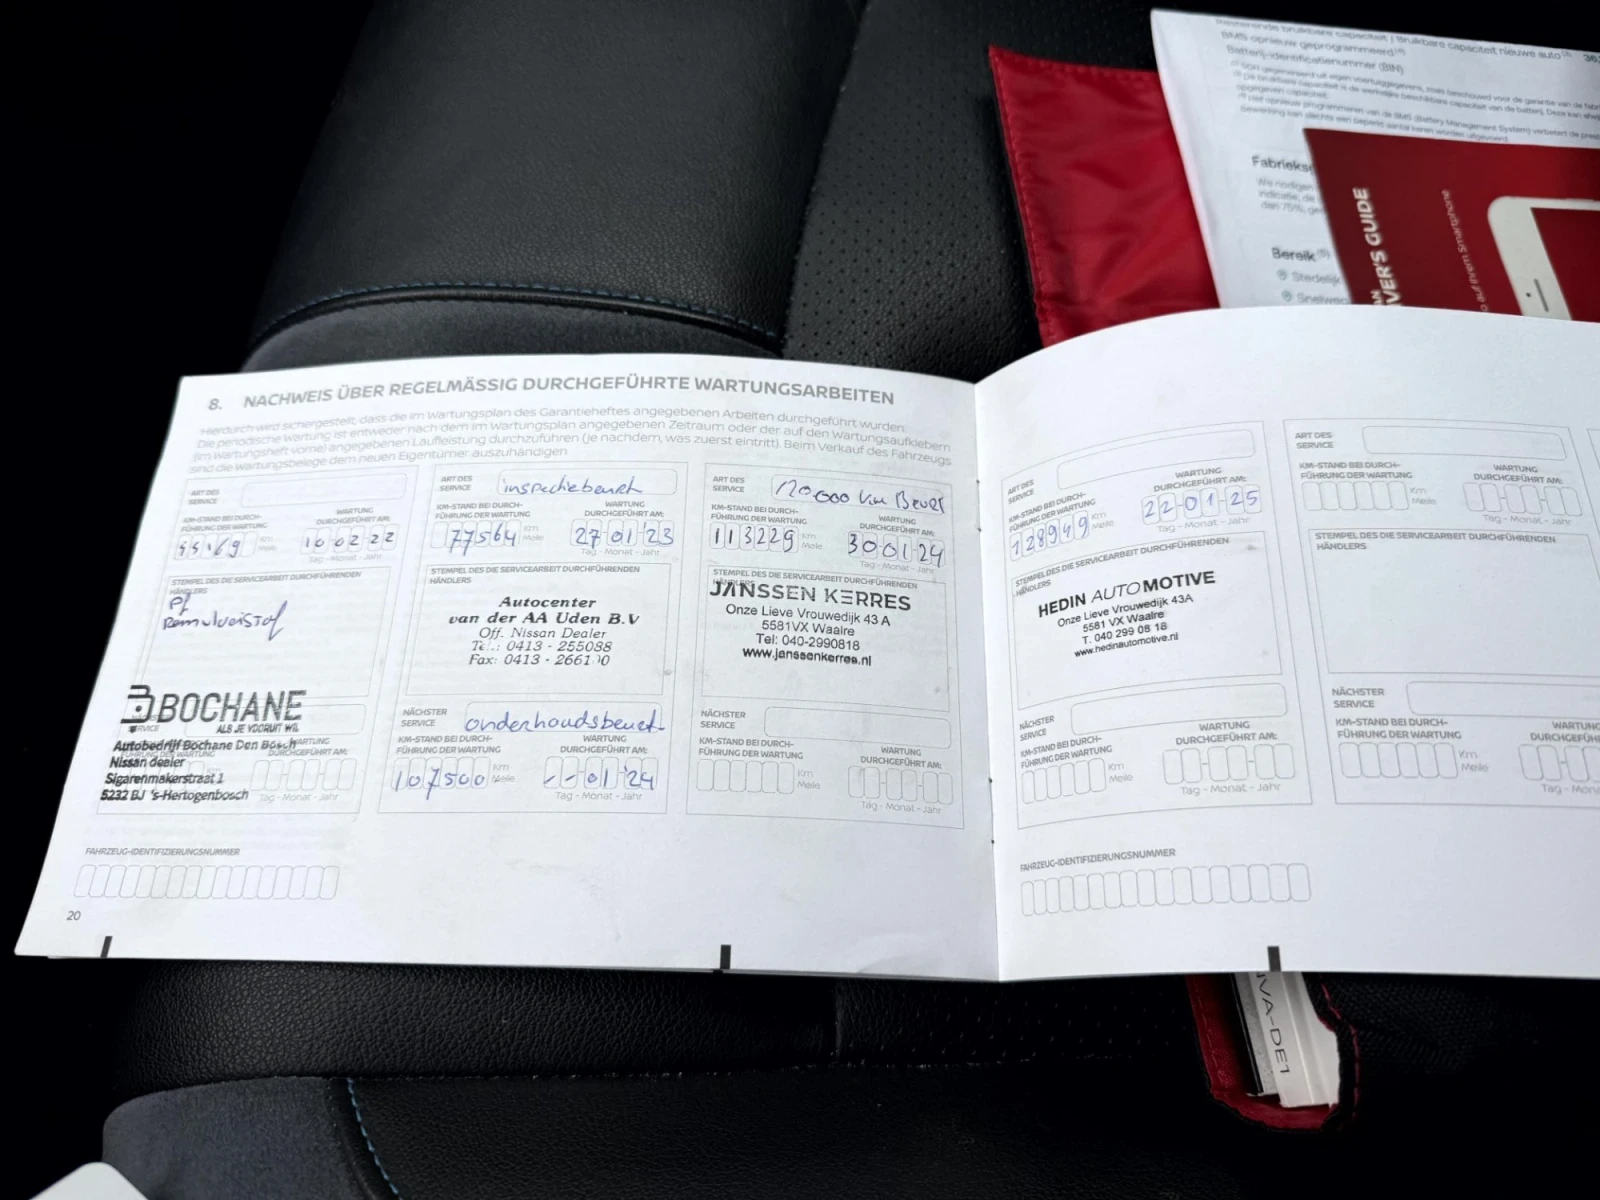 Resterende bruikbare capaciteit | Bruikbare capaciteit nieuwe auto
BMS opnieuw geprogrammeerd
Batterij-identificatienummer (BIN)
Fabrieks
We nodigen
indicatie; de
dan 75%, ge
Bereik
Stedelijk
Snelweg
VER'S GUIDE
auf Ihrem Smartphone
8. NACHWEIS ÜBER REGELMÄSSIG DURCHGEFÜHRTE WARTUNGSARBEITEN
Hierdurch wird sichergestellt, dass die im Wartungsplan des Garantieheftes angegebenen Arbeiten durchgeführt wurden.
Die periodische Wartung ist entweder nach dem im Wartungsplan angegebenen Zeitraum oder der auf den Wartungsaufklebern
(im Wartungsheft vorne) angegebenen Laufleistung durchzuführen (je nachdem, was zuerst eintritt). Beim Verkauf des Fahrzeugs
sind die Wartungsbelege dem neuen Eigentümer auszuhändigen
ART DES
SERVICE
KM-STAND BEI DURCH-
FÜHRUNG DER WARTUNG
WARTUNG
DURCHGEFÜHRT AM:
Km
Meile
10-02-22
Tag - Monat - Jahr
STEMPEL DES DIE SERVICEARBEIT DURCHFÜHRENDEN
HÄNDLERS
Remvloeistof
BOCHANE
ALS JE VOORUIT WIL
Autobedrijf Bochane Den Bosch
Nissan dealer
Sigarenmakerstraat 1
5232 BJ 's-Hertogenbosch
DURCHGEFÜHRT AM:
Tag - Monat - Jahr
FAHRZEUG-IDENTIFIZIERUNGSNUMMER
20
ART DES
SERVICE
inspectiebeurt
KM-STAND BEI DURCH-
FÜHRUNG DER WARTUNG
WARTUNG
DURCHGEFÜHRT AM:
77564
Km
Meile
27-01-'23
Tag - Monat - Jahr
STEMPEL DES DIE SERVICEARBEIT DURCHFÜHRENDEN
HÄNDLERS
Autocenter
van der AA Uden B.V
Off. Nissan Dealer
Tel.: 0413 - 255088
Fax: 0413 -
NÄCHSTER
SERVICE
onderhoudsbeurt
KM-STAND BEI DURCH-
FÜHRUNG DER WARTUNG
WARTUNG
DURCHGEFÜHRT AM:
107500
Km
Meile
-- 01 '24
Tag - Monat - Jahr
ART DES
SERVICE
120.000 km Beurt
KM-STAND BEI DURCH-
FÜHRUNG DER WARTUNG
WARTUNG
DURCHGEFÜHRT AM:
113229
Km
Meile
300124
Tag - Monat - Jahr
STEMPEL DES DIE SERVICEARBEIT DURCHFÜHRENDEN
HÄNDLERS
JANSSEN KERRES
Onze Lieve Vrouwedijk 43 A
5581VX Waalre
Tel: 040-2990818
www.janssenkerres.nl
NÄCHSTER
SERVICE
KM-STAND BEI DURCH-
FÜHRUNG DER WARTUNG
WARTUNG
DURCHGEFÜHRT AM:
Km
Meile
Tag - Monat - Jahr
ART DES
SERVICE
KM-STAND BEI DURCH-
FÜHRUNG DER WARTUNG
WARTUNG
DURCHGEFÜHRT AM:
128949
Km
Meile
22-01-25
Tag - Monat - Jahr
STEMPEL DES DIE SERVICEARBEIT DURCHFÜHRENDEN
HÄNDLERS
HEDIN AUTOMOTIVE
Onze Lieve Vrouwedijk 43A
5581 VX Waalre
T. 040 299 08 18
www.hedinautomotive.nl
NÄCHSTER
SERVICE
KM-STAND BEI DURCH-
FÜHRUNG DER WARTUNG
WARTUNG
DURCHGEFÜHRT AM:
Km
Meile
Tag - Monat - Jahr
FAHRZEUG-IDENTIFIZIERUNGSNUMMER
ART DES
SERVICE
KM-STAND BEI DURCH-
FÜHRUNG DER WARTUNG
WARTUNG
DURCHGEFÜHRT AM:
Km
Meile
Tag - Monat - Jahr
STEMPEL DES DIE SERVICEARBEIT DURCHFÜHRENDEN
HÄNDLERS
NÄCHSTER
SERVICE
KM-STAND BEI DURCH-
FÜHRUNG DER WARTUNG
WARTUNG
Km
Meile
NVA-DE1